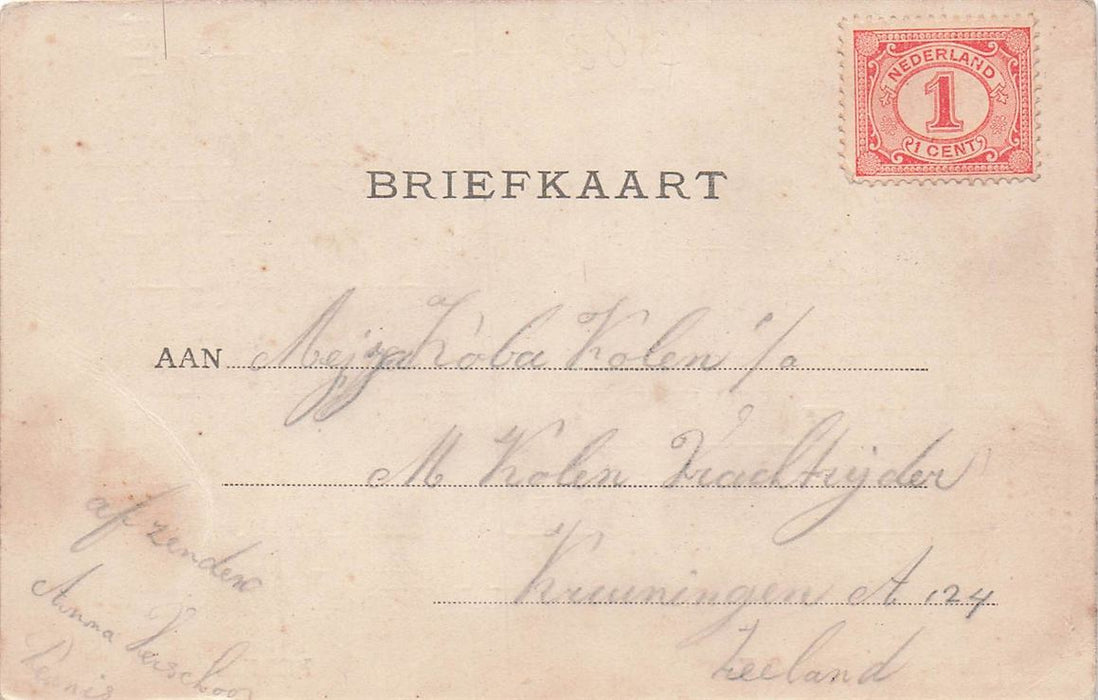 NEDERLAND
1
1 CENT
BRIEFKAART
AAN Mej Koba Kolen %
M Kolen Vrachtrijder
Kruiningen A 124
Zeeland
afzender
Anna Verschoor